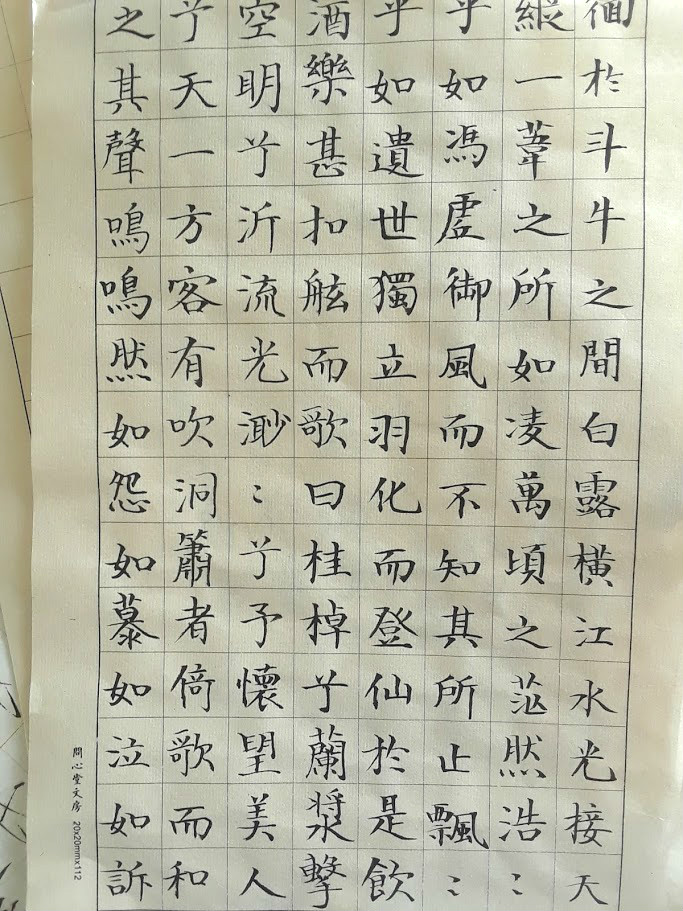 徊扵斗牛之間白露橫江水光接天
縱一葦之所如凌萬頃之茫然浩〻
乎如馮虛御風而不知其所止飄〻
乎如遺世獨立羽化而登仙扵是飲
酒樂甚扣舷而歌曰桂棹兮蘭槳擊
空明兮沂流光渺〻兮予懷望美人
兮天一方客有吹洞簫者倚歌而和
之其聲鳴鳴然如怨如慕如泣如訴
問心堂文房 20x20mmx112